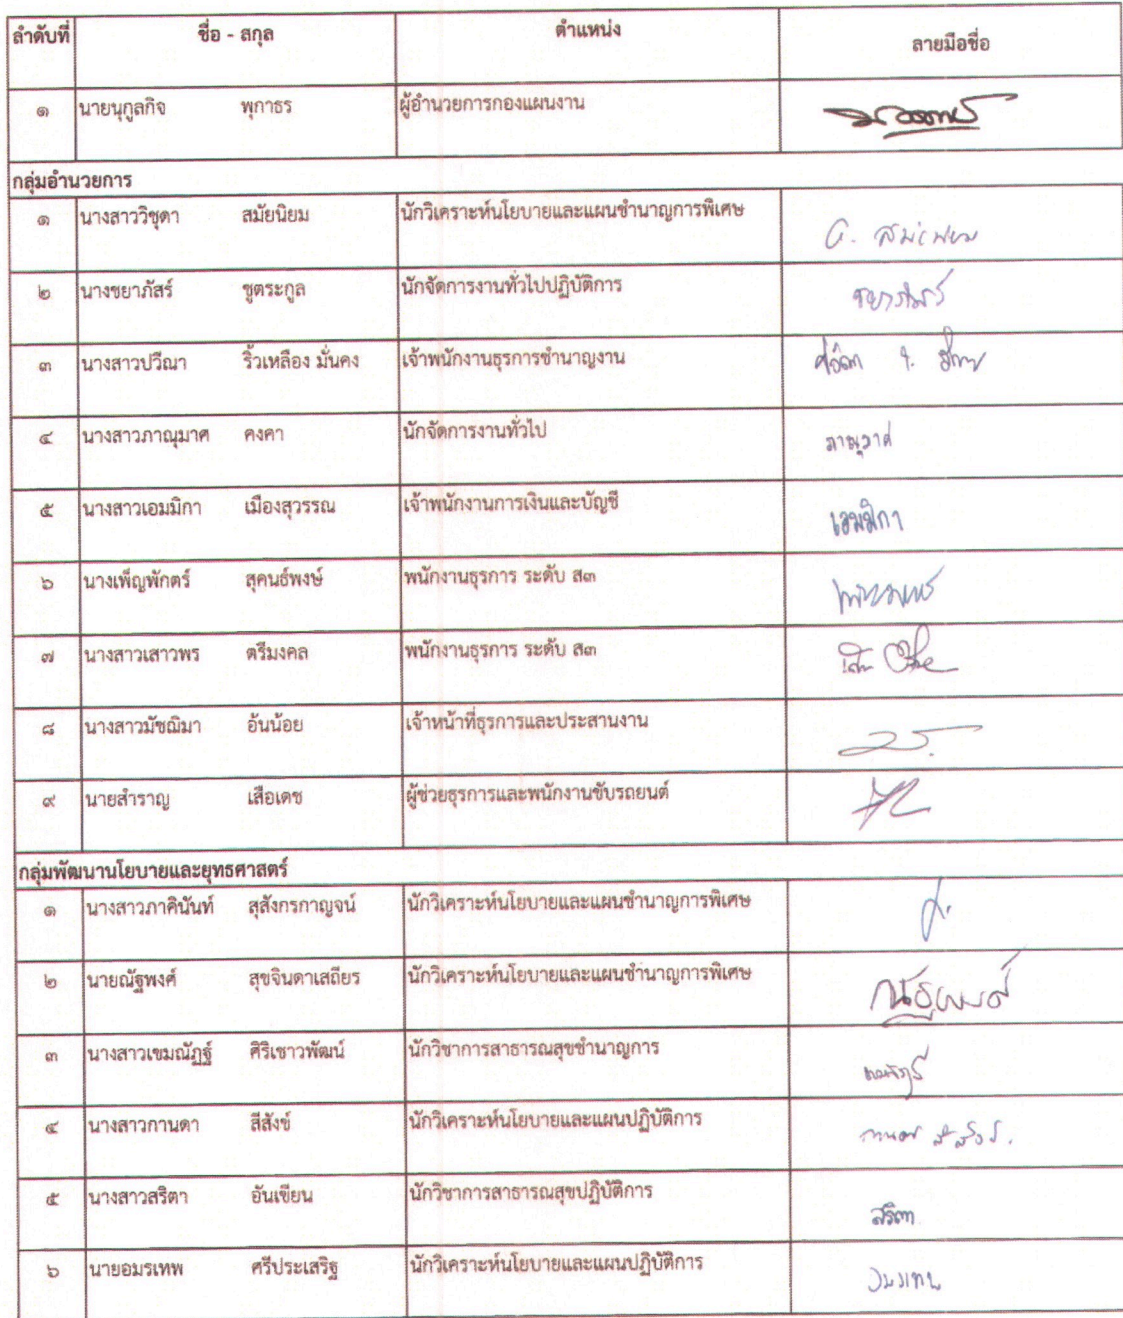 ลำดับที่ ชื่อ - สกุล ตำแหน่ง ลายมือชื่อ
๑ นายนุกูลกิจ พุกาธร ผู้อำนวยการกองแผนงาน
กลุ่มอำนวยการ
๑ นางสาววิชุดา สมัยนิยม นักวิเคราะห์นโยบายและแผนชำนาญการพิเศษ
๒ นางชยาภัสร์ ชูตระกูล นักจัดการงานทั่วไปปฏิบัติการ ชยาภัสร์
๓ นางสาวปวีณา ริ้วเหลือง มั่นคง เจ้าพนักงานธุรการชำนาญงาน
๔ นางสาวภาณุมาศ คงคา นักจัดการงานทั่วไป ภาณุมาศ
๕ นางสาวเอมมิกา เมืองสุวรรณ เจ้าพนักงานการเงินและบัญชี เอมมิกา
๖ นางเพ็ญพักตร์ สุคนธ์พงษ์ พนักงานธุรการ ระดับ ส๓
๗ นางสาวเสาวพร ตรีมงคล พนักงานธุรการ ระดับ ส๓
๘ นางสาวมัชฌิมา อ้นน้อย เจ้าหน้าที่ธุรการและประสานงาน
๙ นายสำราญ เสือเดช ผู้ช่วยธุรการและพนักงานขับรถยนต์
กลุ่มพัฒนานโยบายและยุทธศาสตร์
๑ นางสาวภาคินันท์ สุสังกรกาญจน์ นักวิเคราะห์นโยบายและแผนชำนาญการพิเศษ
๒ นายณัฐพงศ์ สุขจินดาเสถียร นักวิเคราะห์นโยบายและแผนชำนาญการพิเศษ ณัฐพงศ์
๓ นางสาวเขมณัฏฐ์ ศิริเชาวพัฒน์ นักวิชาการสาธารณสุขชำนาญการ
๔ นางสาวกานดา สีสังข์ นักวิเคราะห์นโยบายและแผนปฏิบัติการ
๕ นางสาวสริตา อันเขียน นักวิชาการสาธารณสุขปฏิบัติการ สริตา
๖ นายอมรเทพ ศรีประเสริฐ นักวิเคราะห์นโยบายและแผนปฏิบัติการ อมรเทพ